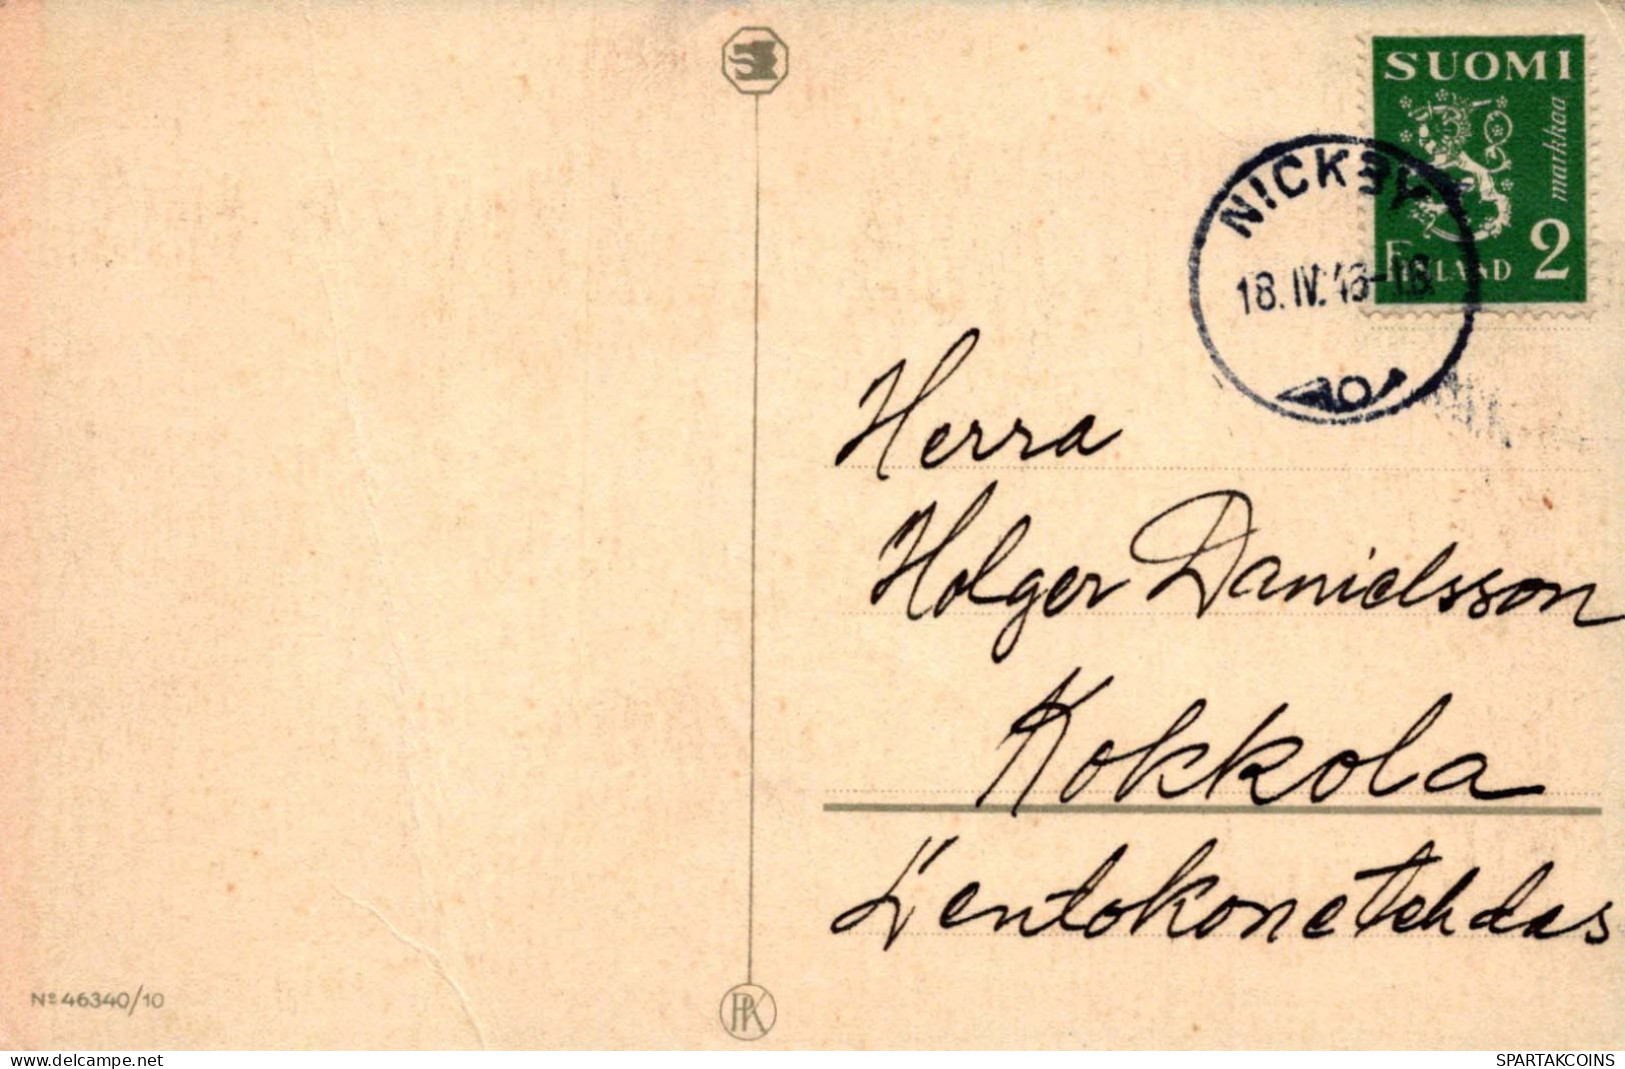 SUOMI
markkaa
FINLAND 2
NICKBY
18. IV. 43-18.
Herra
Holger Danielsson
Kokkola
Lentokonetehdas
Nº 46340/10
PK
www.delcampe.net
SPARTAKCOINS